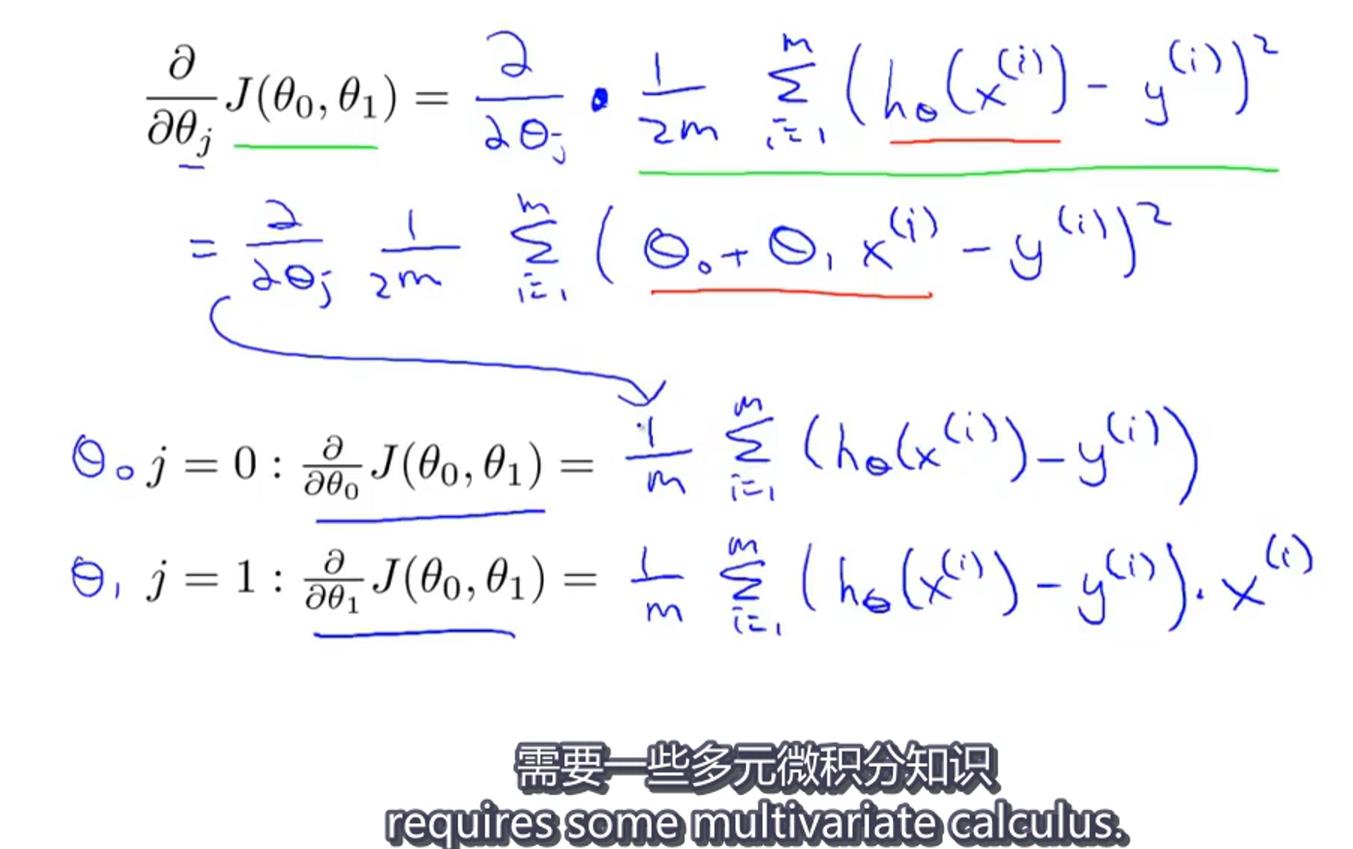 ∂/∂θ_j J(θ₀, θ₁) = ∂/∂θ_j · 1/2m ∑_{i=1}^{m} (h_θ(x^{(i)}) - y^{(i)})²
= ∂/∂θ_j 1/2m ∑_{i=1}^{m} (θ₀ + θ₁ x^{(i)} - y^{(i)})²
θ₀ j = 0 : ∂/∂θ₀ J(θ₀, θ₁) = 1/m ∑_{i=1}^{m} (h_θ(x^{(i)}) - y^{(i)})
θ₁ j = 1 : ∂/∂θ₁ J(θ₀, θ₁) = 1/m ∑_{i=1}^{m} (h_θ(x^{(i)}) - y^{(i)}) · x^{(i)}
需要一些多元微积分知识
requires some multivariate calculus.